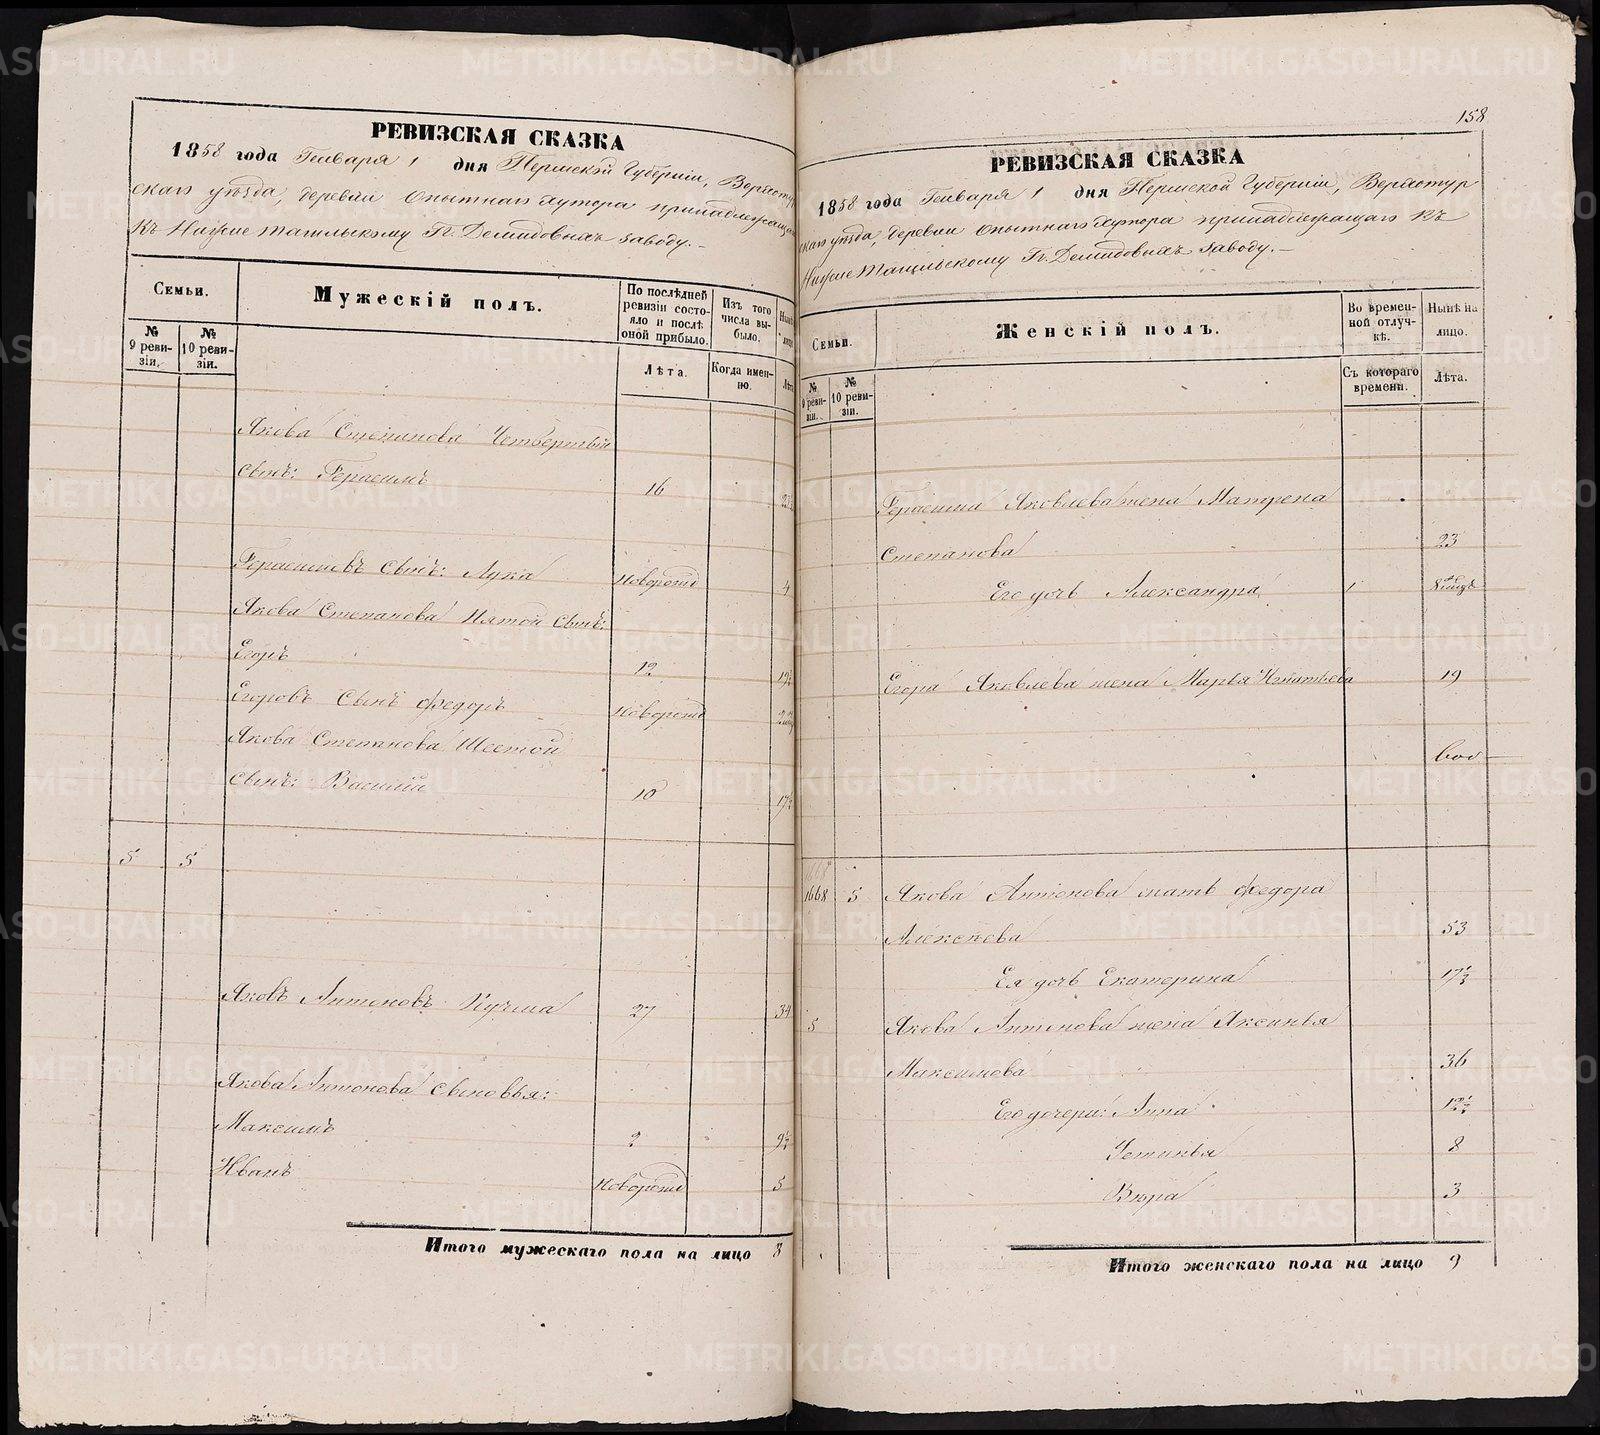 РЕВИЗСКАЯ СКАЗКА
1858 года Генваря 1 дня Пермской Губерніи, Верхотур
скаго уѣзда, деревни Опытнаго Хутора принадлежащаго
къ Нижне Тагильскому Гг. Демидовыхъ заводу.
Семьи.
№ 9 ревизіи.
№ 10 ревизіи.
Мужескій полъ.
По послѣдней
ревизіи состо-
яло и послѣ
оной прибыло.
Лѣта.
Изъ того
числа вы-
было.
Когда имен-
но.
Якова Степанова Четвертый
сынъ: Герасимъ 16
Герасимовъ Сынъ: Лука Новорожд 4
Якова Степанова Пятой Сынъ:
Егоръ 12 19½
Егоровъ Сынъ Федоръ Новорожд
Якова Степанова Шестой
сынъ: Василій 10 17½
5 5
Яковъ Антоновъ Кучма 27 34
Якова Антонова сыновья:
Максимъ 2 9½
Иванъ Новорожд 5
Итого мужескаго пола на лицо 8
158
РЕВИЗСКАЯ СКАЗКА
1858 года Генваря 1 дня Пермской Губерніи, Верхотур
скаго уѣзда, деревни Опытнаго Хутора принадлежащаго къ
Нижне Тагильскому Гг. Демидовыхъ заводу.
Семьи.
№ 9 ревизіи.
№ 10 ревизіи.
Женскій полъ.
Во времен-
ной отлуч-
кѣ.
Съ котораго
времени.
Нынѣ на
лицо.
Лѣта.
Герасима Яковлева жена Матрена
Степанова 23
Его дочь Александра
Егора Яковлева жена Марья Игнатьева 19
1668 5 Якова Антонова мать Федора
Алексѣева 53
Ея дочь Екатерина 17½
5 Якова Антонова жена Аксинья
Максимова 36
Его дочери: Анна 12½
Устинья 8
Вѣра 3
Итого женскаго пола на лицо 9
METRIKI.GASO-URAL.RU